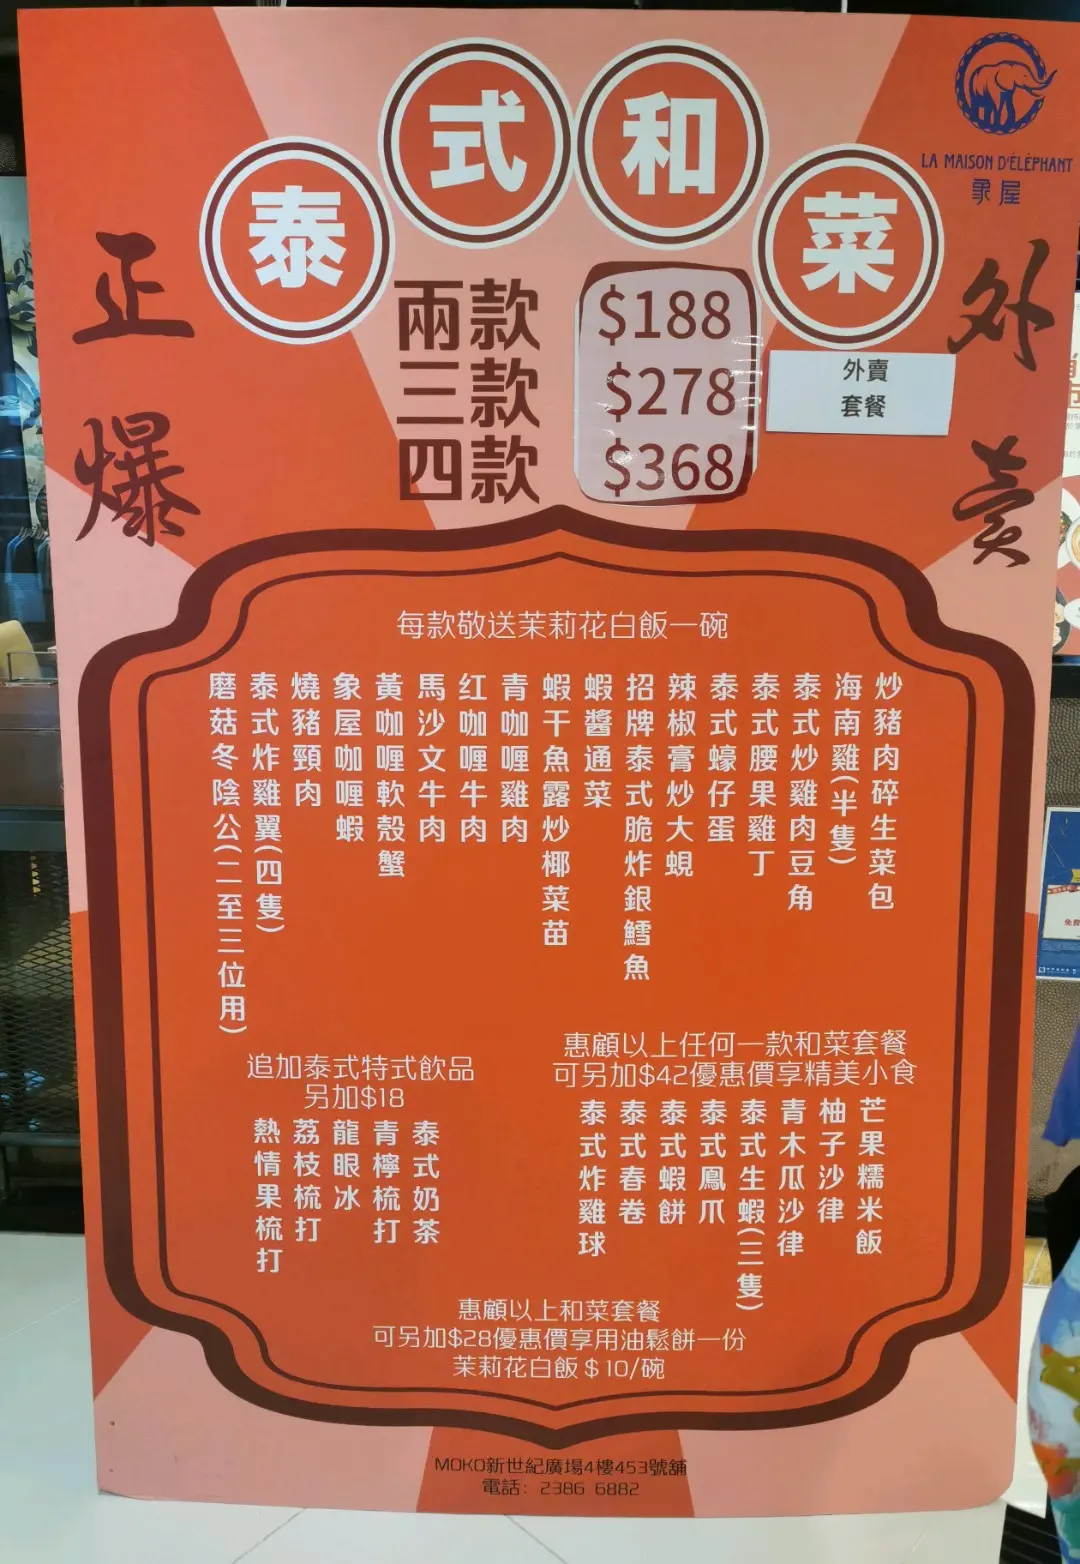 泰式和菜
LA MAISON D'ÉLÉPHANT
象屋
正爆
外賣
兩款 $188
三款 $278
四款 $368
外賣
套餐
每款敬送茉莉花白飯一碗
炒豬肉碎生菜包
海南雞(半隻)
泰式炒雞肉豆角
泰式腰果雞丁
泰式蠔仔蛋
辣椒膏炒大蜆
招牌泰式脆炸銀鱈魚
蝦醬通菜
蝦干魚露炒椰菜苗
青咖喱雞肉
红咖喱牛肉
馬沙文牛肉
黃咖喱軟殼蟹
象屋咖喱蝦
燒豬頸肉
泰式炸雞翼(四隻)
磨菇冬陰公(二至三位用)
惠顧以上任何一款和菜套餐
可另加$42優惠價享精美小食
芒果糯米飯
柚子沙律
青木瓜沙律
泰式生蝦(三隻)
泰式鳳爪
泰式蝦餅
泰式春卷
泰式炸雞球
追加泰式特式飲品
另加$18
泰式奶茶
青檸梳打
龍眼冰
荔枝梳打
熱情果梳打
惠顧以上和菜套餐
可另加$28優惠價享用油鬆餅一份
茉莉花白飯$10/碗
MOKO新世紀廣場4樓453號舖
電話: 2386 6882